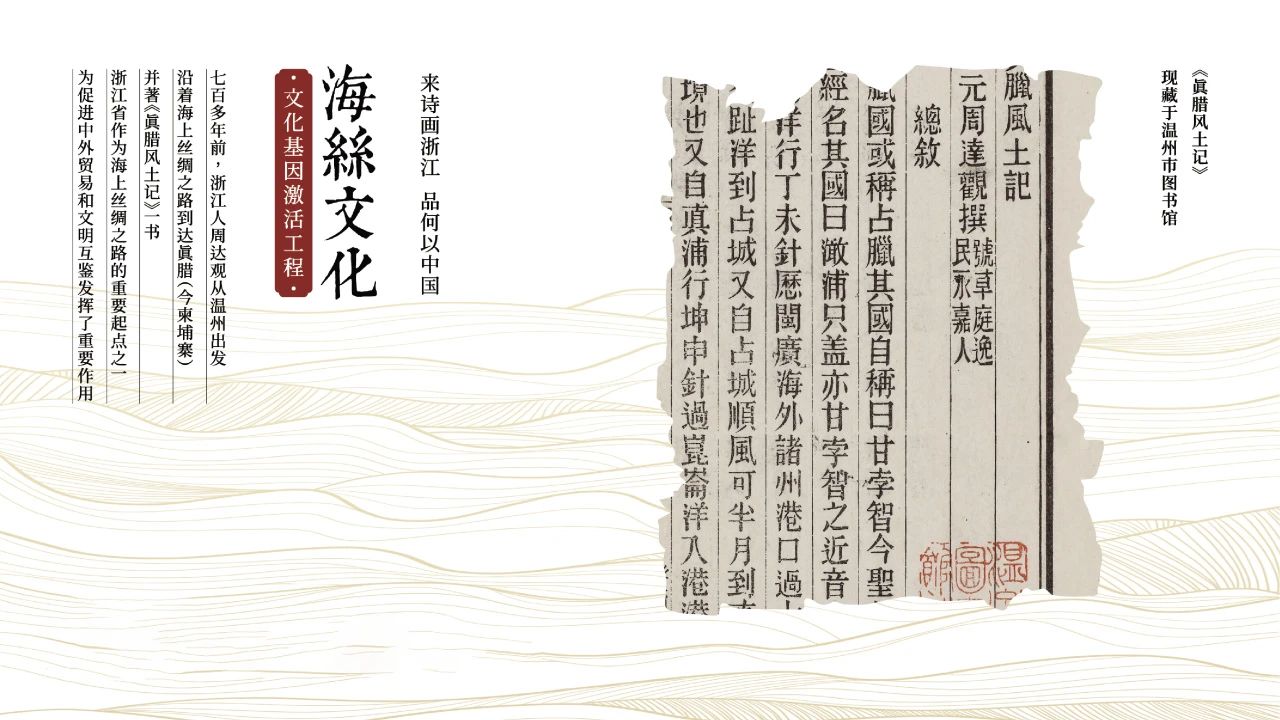 《眞腊风土记》
现藏于温州市图书馆
臘風土記
元周達觀撰 號草庭逸
民永嘉人
總敘
臘國或稱占臘其國自稱曰甘孛智今聖
經名其國曰澉浦只盖亦甘孛智之近音
洋行丁未針歷閩廣海外諸州港口過
趾洋到占城又自占城順風可半月到
境也又自真浦行坤申針過崑崙洋入港
来诗画浙江 品何以中国
海絲文化
·文化基因激活工程·
七百多年前，浙江人周达观从温州出发
沿着海上丝绸之路到达眞腊（今柬埔寨）
并著《眞腊风土记》一书
浙江省作为海上丝绸之路的重要起点之一
为促进中外贸易和文明互鉴发挥了重要作用